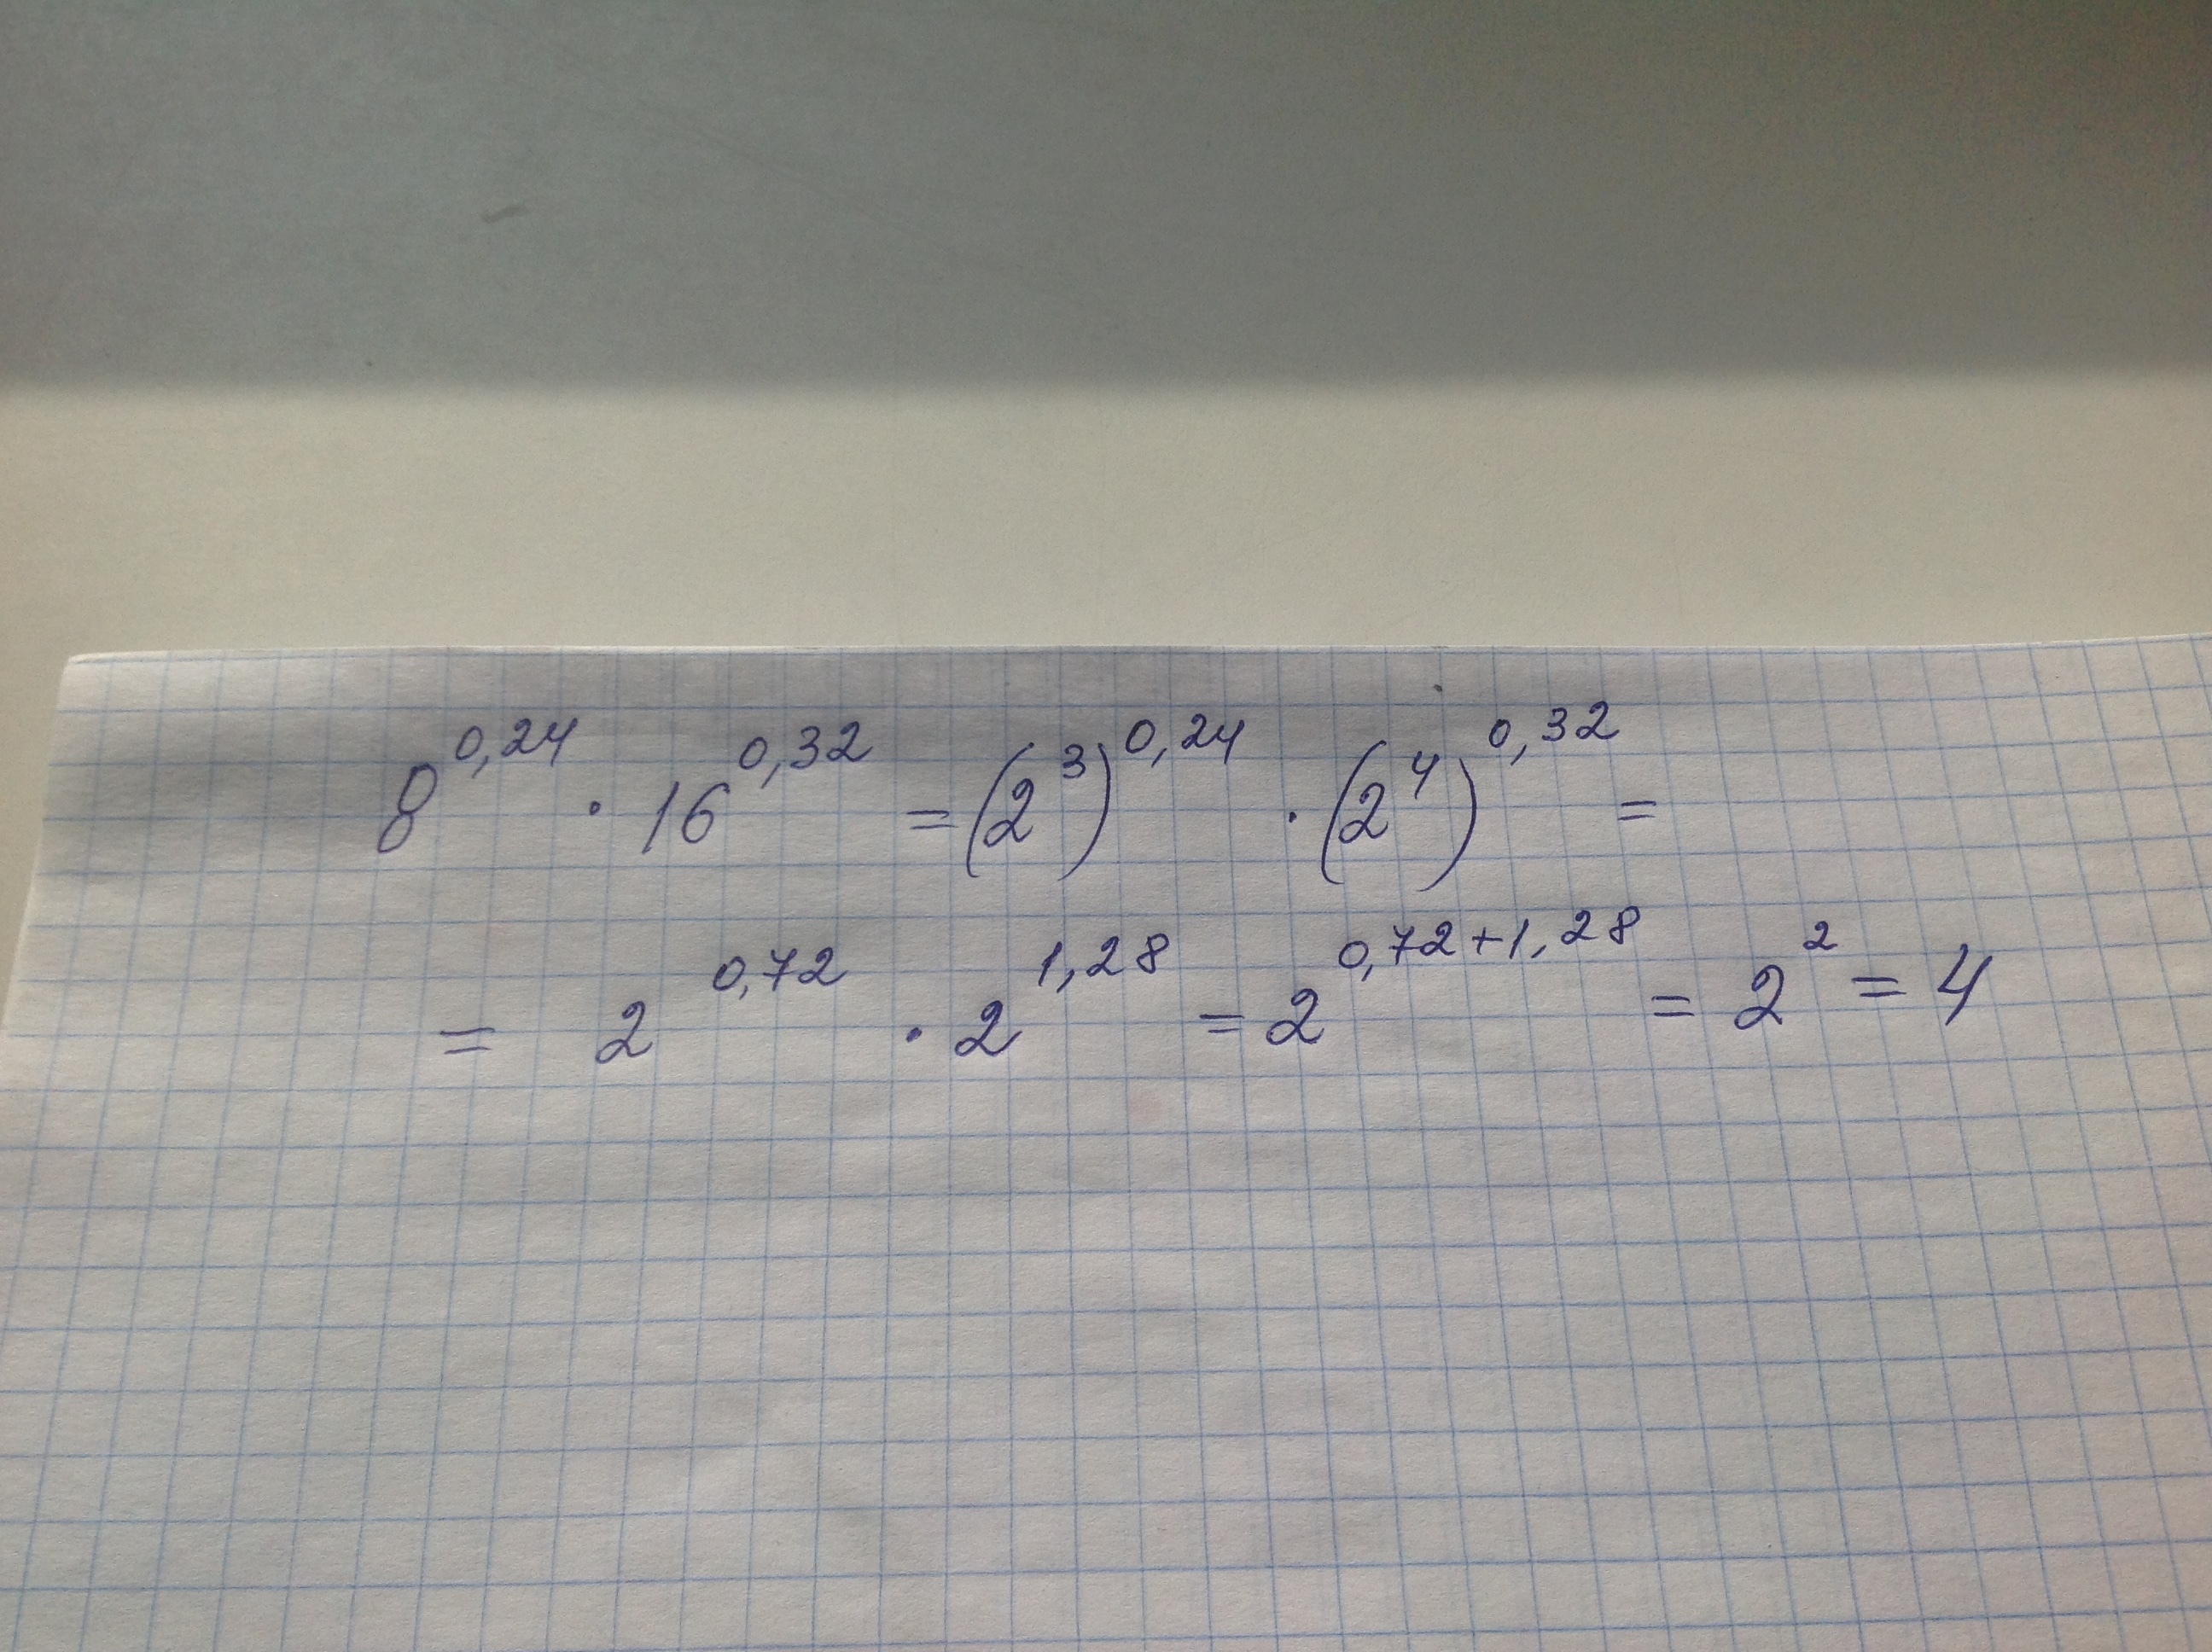 8^{0,24} · 16^{0,32} = (2^3)^{0,24} · (2^4)^{0,32} =
= 2^{0,72} · 2^{1,28} = 2^{0,72+1,28} = 2^2 = 4